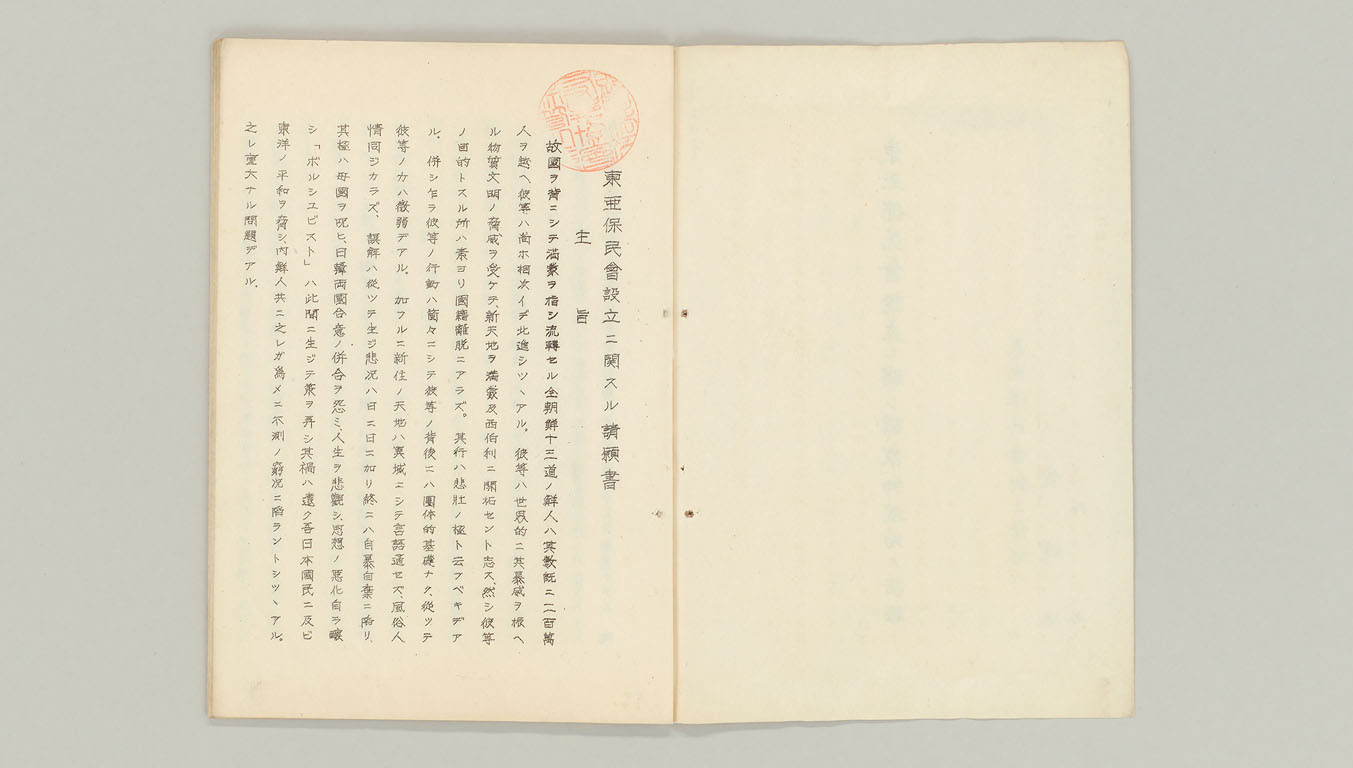 東亜保民會設立ニ関スル請願書
主旨
故國ヲ背ニシテ満蒙ヲ指シ流轉セル全朝鮮十三道ノ鮮人ハ其数既ニ二百萬
人ヲ越ヘ彼等ハ尚ホ相次イデ北進シツヽアル。彼等ハ世界的ニ其暴威ヲ振ヘ
ル物質文明ノ脅威ヲ受ケテ、新天地ヲ満蒙及西伯利ニ開拓セント志ス、然シ彼等
ノ目的トスル所ハ素ヨリ國籍離脱ニアラズ。其行ハ悲壮ノ極ト云フベキデア
ル。併シ乍ラ彼等ノ行動ハ箇々ニシテ彼等ノ背後ニハ團体的基礎ナク、從ツテ
彼等ノ力ハ微弱デアル。加フルニ新住ノ天地ハ異域ニシテ言語通セズ、風俗人
情同ジカラズ、誤解ハ從ツテ生ジ悲况ハ日ニ日ニ加リ終ニハ自暴自棄ニ陥リ、
其極ハ母國ヲ呪ヒ、日韓両國合意ノ併合ヲ怨ミ、人生ヲ悲觀シ、思想ノ悪化自ラ醸
シ「ボルシユビスト」ハ此間ニ生ジテ蒙ヲ弄シ其禍ハ遠ク吾日本國民ニ及ビ
東洋ノ平和ヲ脅シ、内鮮人共ニ之レガ爲メニ不測ノ窮况ニ陥ラントシツヽアル。
之レ重大ナル問題デアル、